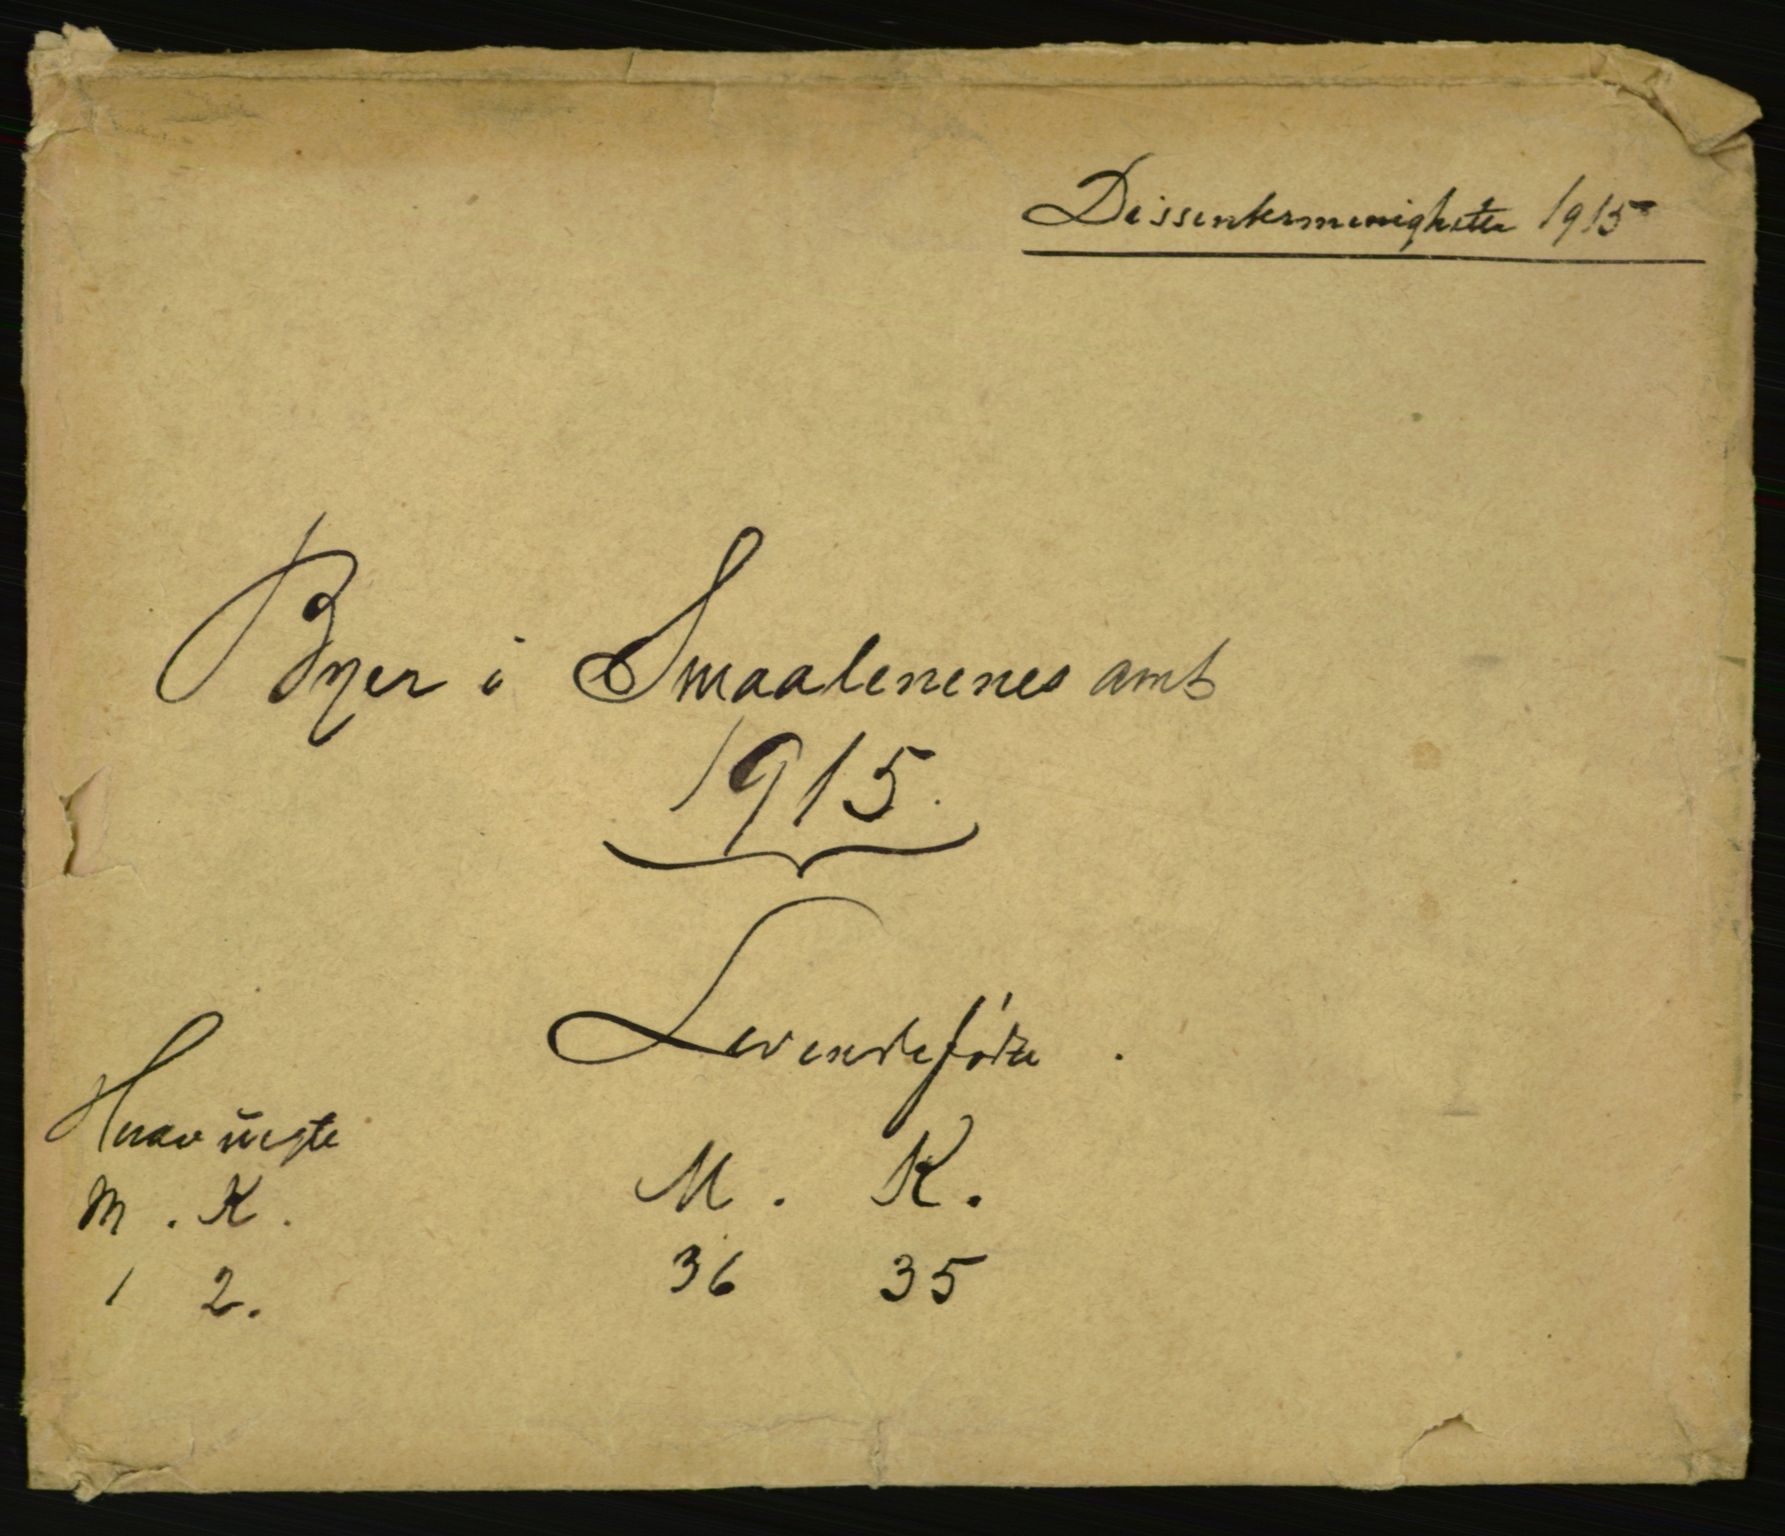 Dissentermenigheter 1915
Byer i Smaalenenes amt
1915.
Levendefødte.
Herav uegte
M. K.
1 2.
M. K.
36 35